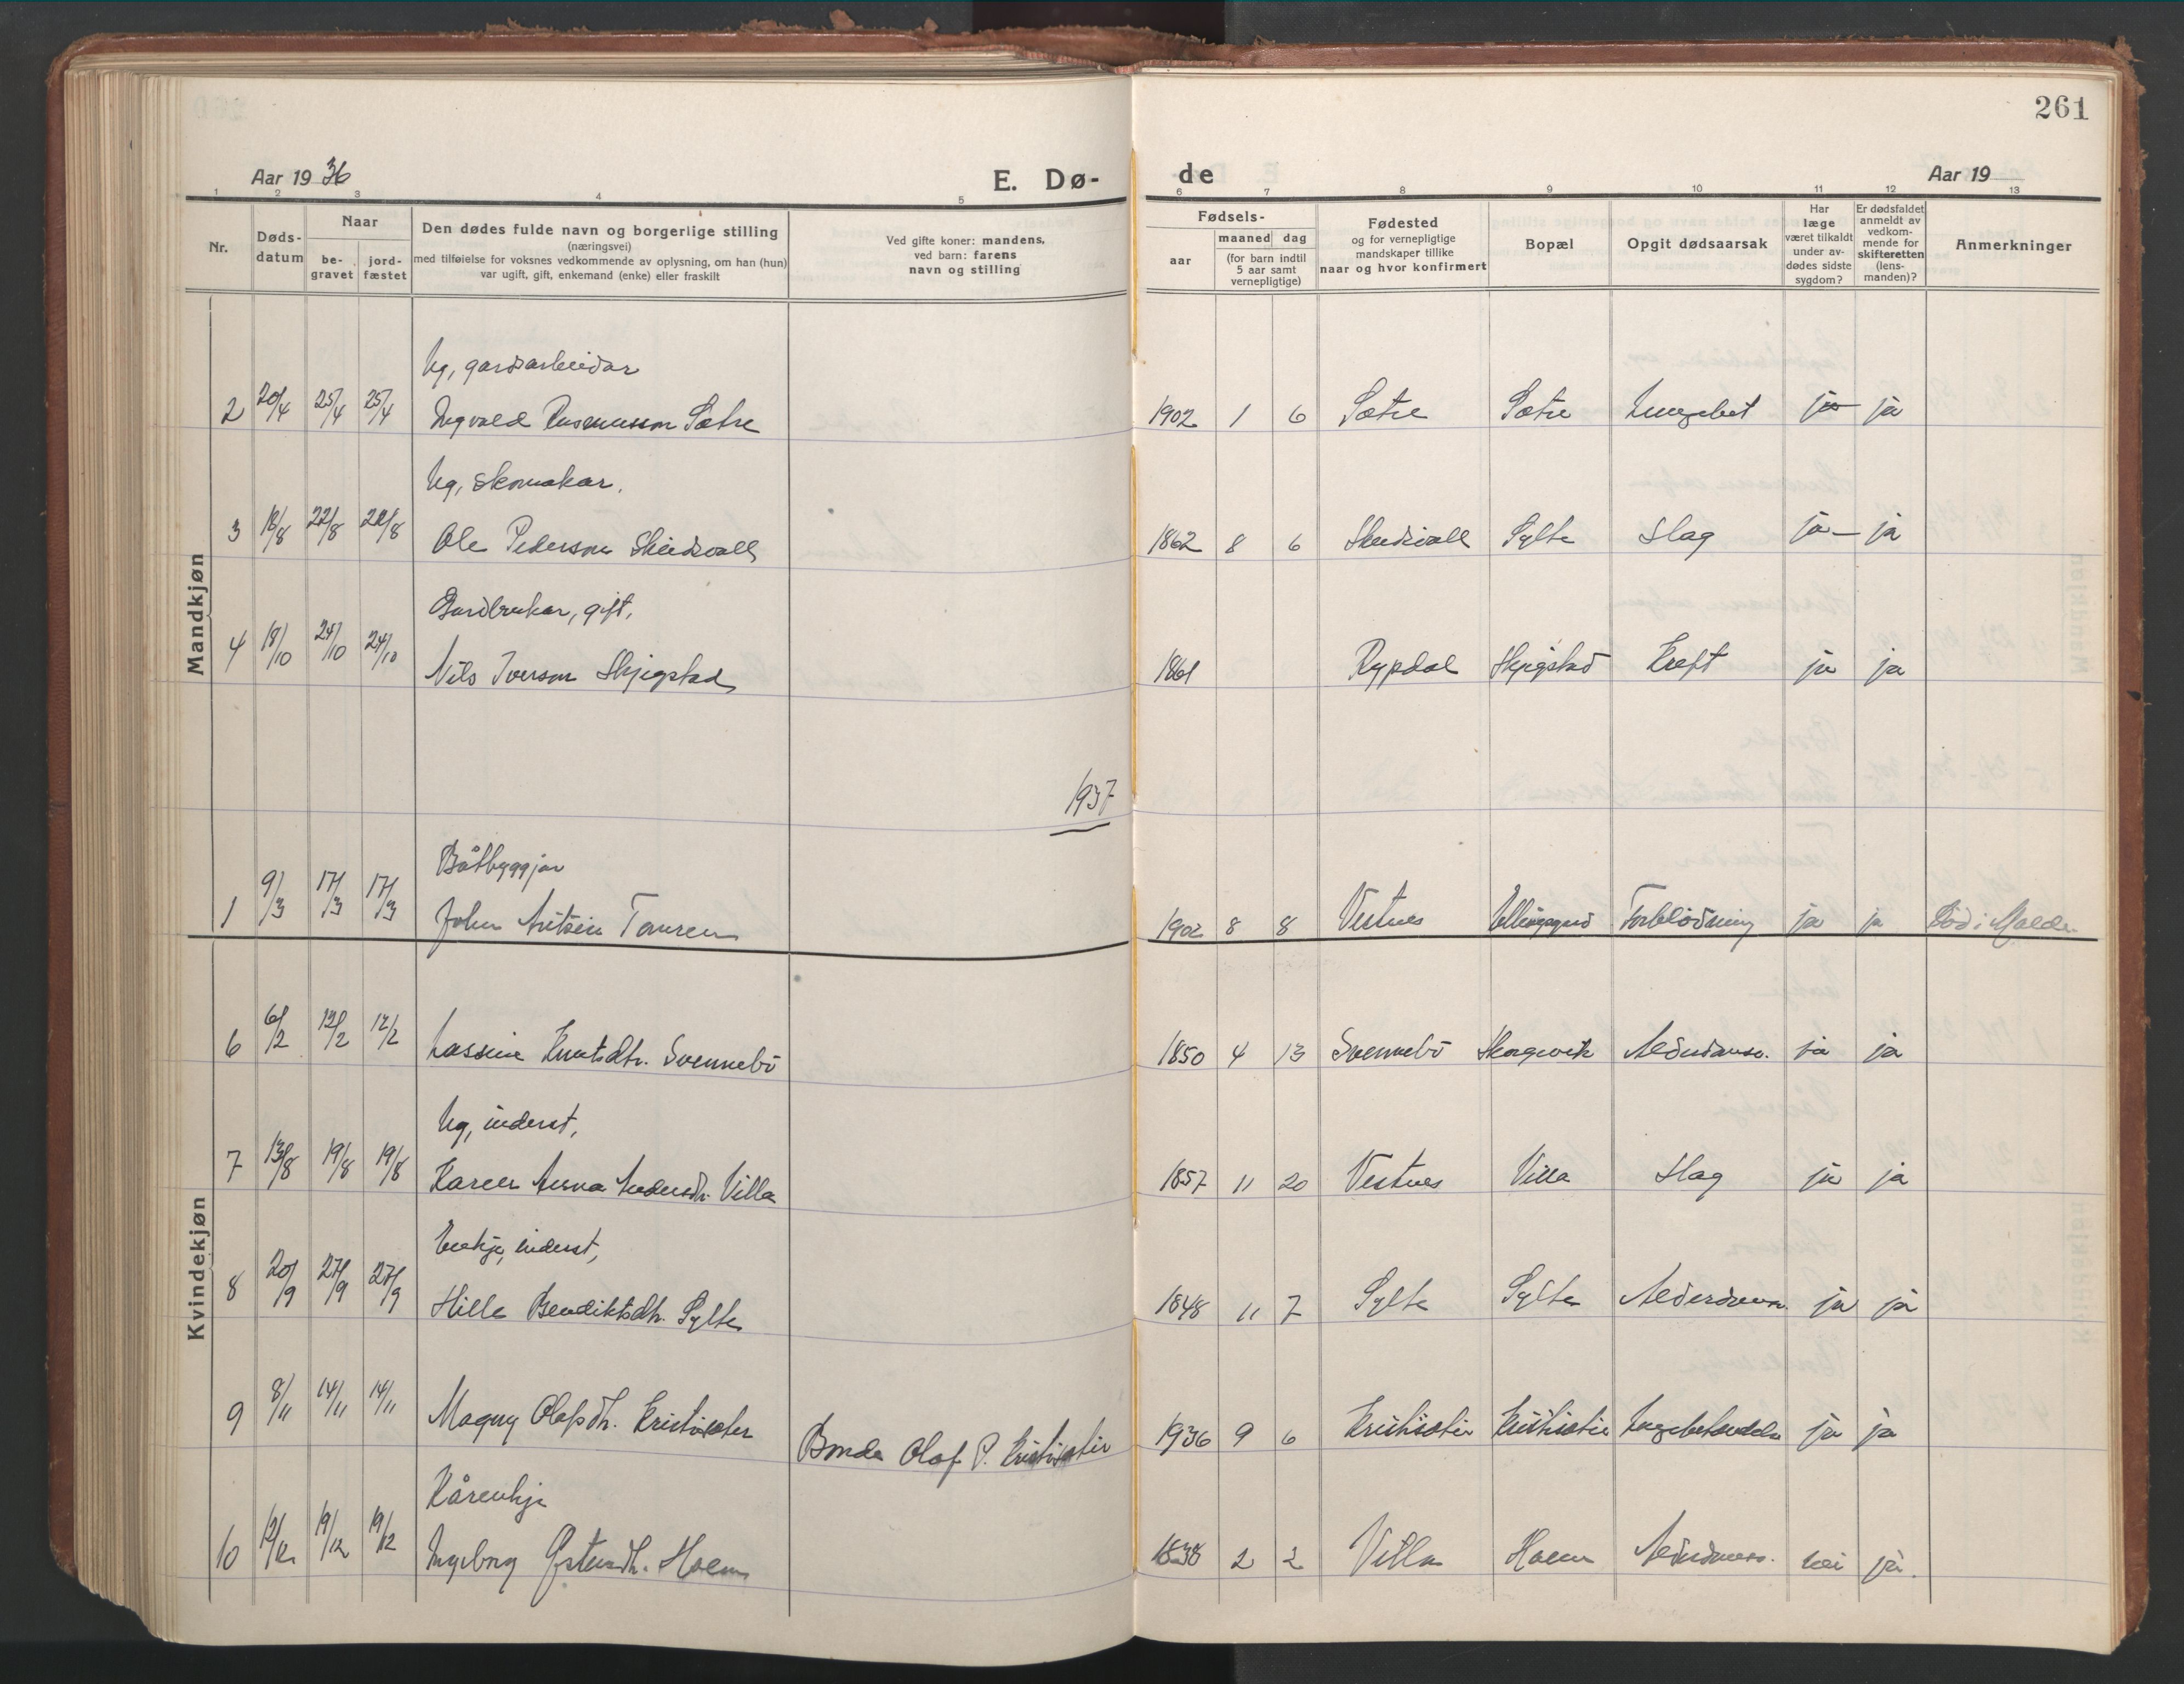 261
Aar 1936
E. Dø-
de
Aar 19
1 2 3 4 5 6 7 8 9 10 11 12 13
Nr.
Døds-
datum
Naar
be-
gravet
jord-
fæstet
Den dødes fulde navn og borgerlige stilling
(næringsvei)
med tilføielse for voksnes vedkommende av oplysning, om han (hun)
var ugift, gift, enkemand (enke) eller fraskilt
Ved gifte koner: mandens,
ved barn: farens
navn og stilling
Fødsels-
aar
maaned dag
(for barn indtil
5 aar samt
vernepligtige)
Fødested
og for vernepligtige
mandskaper tillike
naar og hvor konfirmert
Bopæl
Opgit dødsaarsak
Har
læge
været tilkaldt
under av-
dødes sidste
sygdom?
Er dødsfaldet
anmeldt av
vedkom-
mende for
skifteretten
(lens-
manden)?
Anmerkninger
Mandkjøn
Ug, gardsarbeidar
2 20/4 25/4 25/4 Ingvald Rasmusson Sætre 1902 1 6 Sætre Sætre Lungebet ja ja
Ug, skomakar,
3 18/8 22/8 22/8 Ole Pederson Skeidsvoll 1862 8 6 Skeidsvoll Sylte Slag ja ja
Gardbrukar, gift,
4 18/10 24/10 24/10 Nils Iverson Skjegstad 1861 Rypdal Skjegstad Kreft ja ja
1937
Båtbyggjar
1 9/3 17/3 17/3 John Tomren 1902 8 8 Vestnes Ellingsgard Forblødning ja ja Død i Molde
Kvindekjøn
6 6/2 12/2 12/2 Lassine Knutsdtr. Svennebö 1850 4 13 Svennebö Skorgevik Alderdomsv. ja ja
Ug, inderst,
7 13/8 19/8 19/8 Karen Anna Andersdtr. Villa 1857 11 20 Vestnes Villa Slag ja ja
Enkje, inderst,
8 20/9 27/9 27/9 Hille Bendiktsdtr. Sylte 1848 11 7 Sylte Sylte Alderdomsv. ja ja
9 8/11 14/11 14/11 Magny Olafsdtr. Kristisæter Bonde Olaf P. Kristisæter 1936 9 6 Kristisæter Kristisæter Lungebetendelse ja ja
Kårenkje
10 12/12 19/12 19/12 Ingeborg Østensdtr. Hoem 1838 2 2 Villa Hoem Alderdomsv. nei ja.